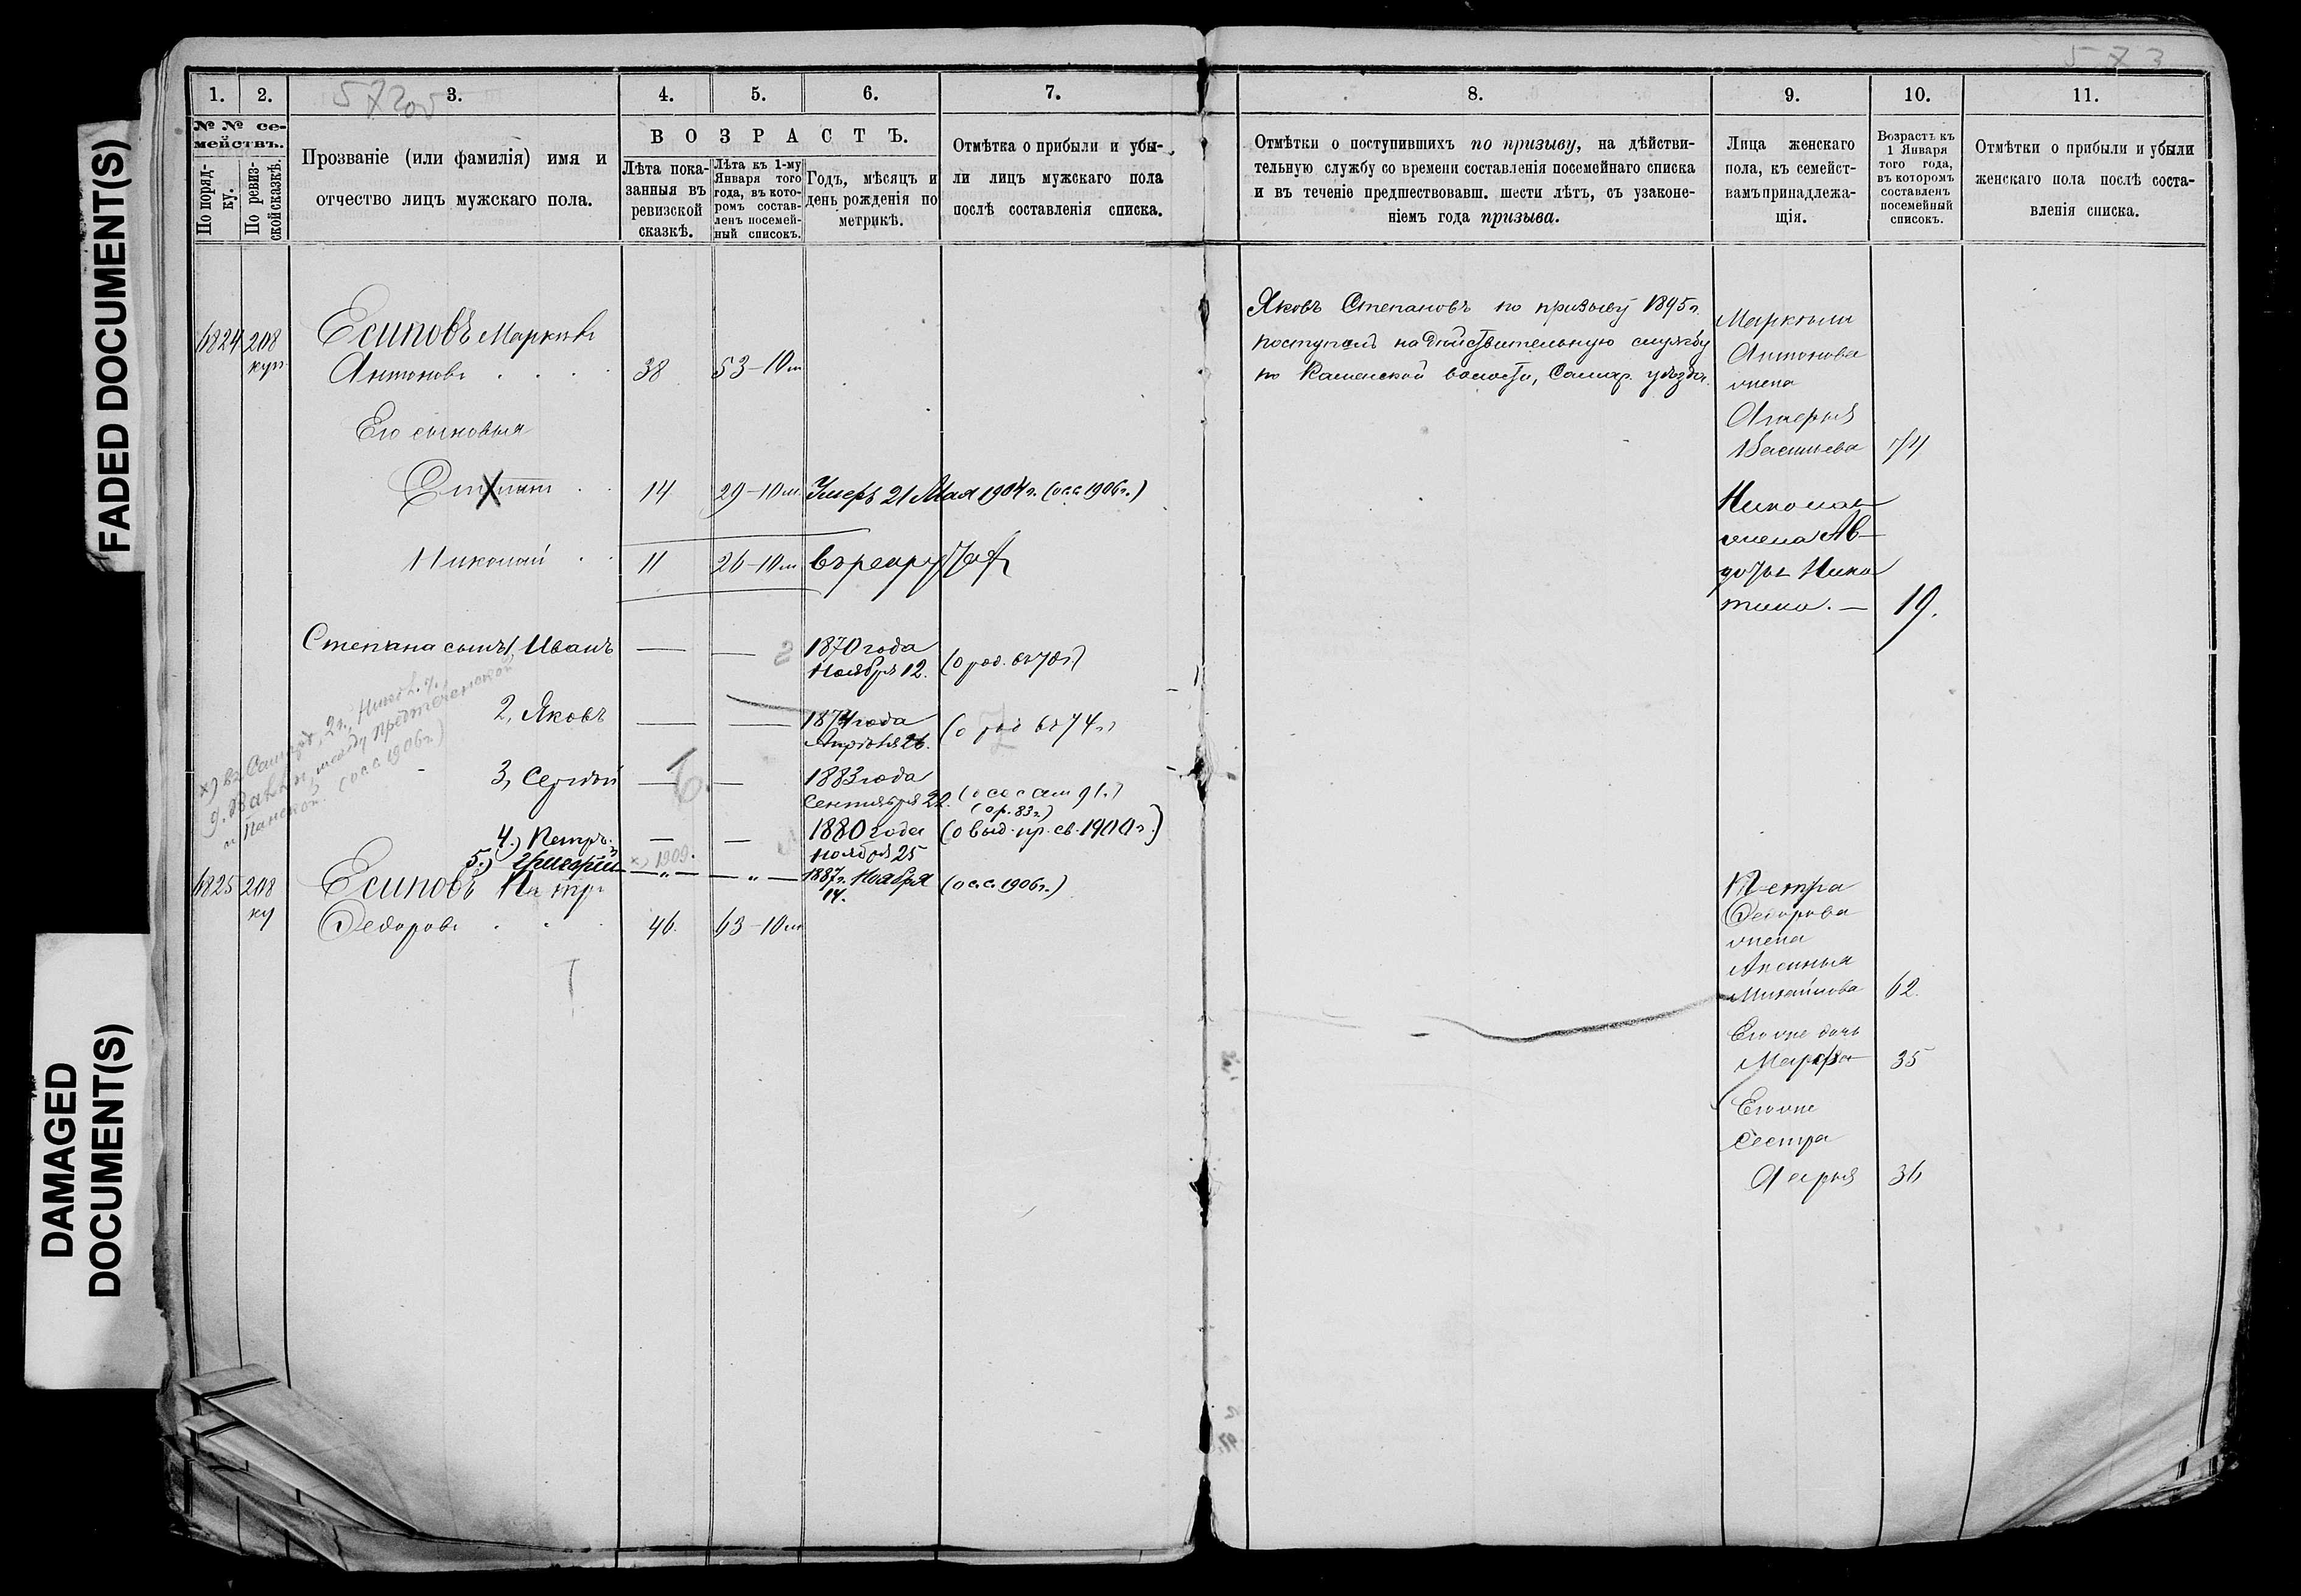 FADED DOCUMENT(S)
DAMAGED
DOCUMENT(S)
573
1.
2.
3.
4.
5.
6.
7.
№ № се-
мействъ.
По поряд-
ку.
По ревиз-
ской сказкѣ.
Прозваніе (или фамилія) имя и
отчество лицъ мужскаго пола.
ВОЗРАСТЪ.
Лѣта пока-
занныя въ
ревизской
сказкѣ.
Лѣта къ 1-му
Января того
года, въ кото-
ромъ состав-
ленъ посемей-
ный списокъ.
Годъ, мѣсяцъ и
день рожденія по
метрикѣ.
Отмѣтка о прибыли и убы-
ли лицъ мужскаго пола
послѣ составленія списка.
6824 208 Есиповъ Маркелъ
куп
Антоновъ 38 53-10м
Его сыновья
Степанъ 14 29-10м Умеръ 21 Мая 1904 г. (о.с.с. 1906 г.)
Николай 11 26-10м въ рекрутах
Степана сынъ 1, Иванъ — — 1870 года
Ноября 12. (о род. въ 70 г.)
2, Яковъ — — 1874 года
Апрѣля 26. (о род въ 74 г.)
3, Сергѣй — — 1883 года
Сентября 22.
(о р. 83 г.)
4.) Петръ. — — 1880 года (о выд. пр. св. 1900 г.)
Ноября 25
5.) Григорій х) 1909. — „ — — „ — 1887 г. Ноября (о.с.с. 1906 г.)
14.
х) въ Самарѣ, 2 ч.,
между Предтеченской
и Панской. (о.с.с. 1906 г.)
6825 208 Есиповъ Петръ
ку
Федоровъ 46. 63-10м
8.
9.
10.
11.
Отмѣтки о поступившихъ по призыву, на дѣйстви-
тельную службу со времени составленія посемейнаго списка
и въ теченіе предшествовавш. шести лѣтъ, съ узаконе-
ніемъ года призыва.
Лица женскаго
пола, къ семейст-
вамъ принадлежа-
щія.
Возрастъ къ
1 Января
того года,
въ которомъ
составленъ
посемейный
списокъ.
Отмѣтки о прибыли и убыли
женскаго пола послѣ соста-
вленія списка.
Яковъ Степановъ по призыву 1895 г.
поступилъ на дѣйствительную службу
по Каменской волости, Самар. уѣзда.
Маркелла
Антонова
жена
Васильева
Николая
жена Ав-
дотья Ники
тина. — 19.
Петра
Федорова
жена
Аксинья
Михайлова 62.
Его же дочь
Марфа 35
Его же
сестра
Дарья 36